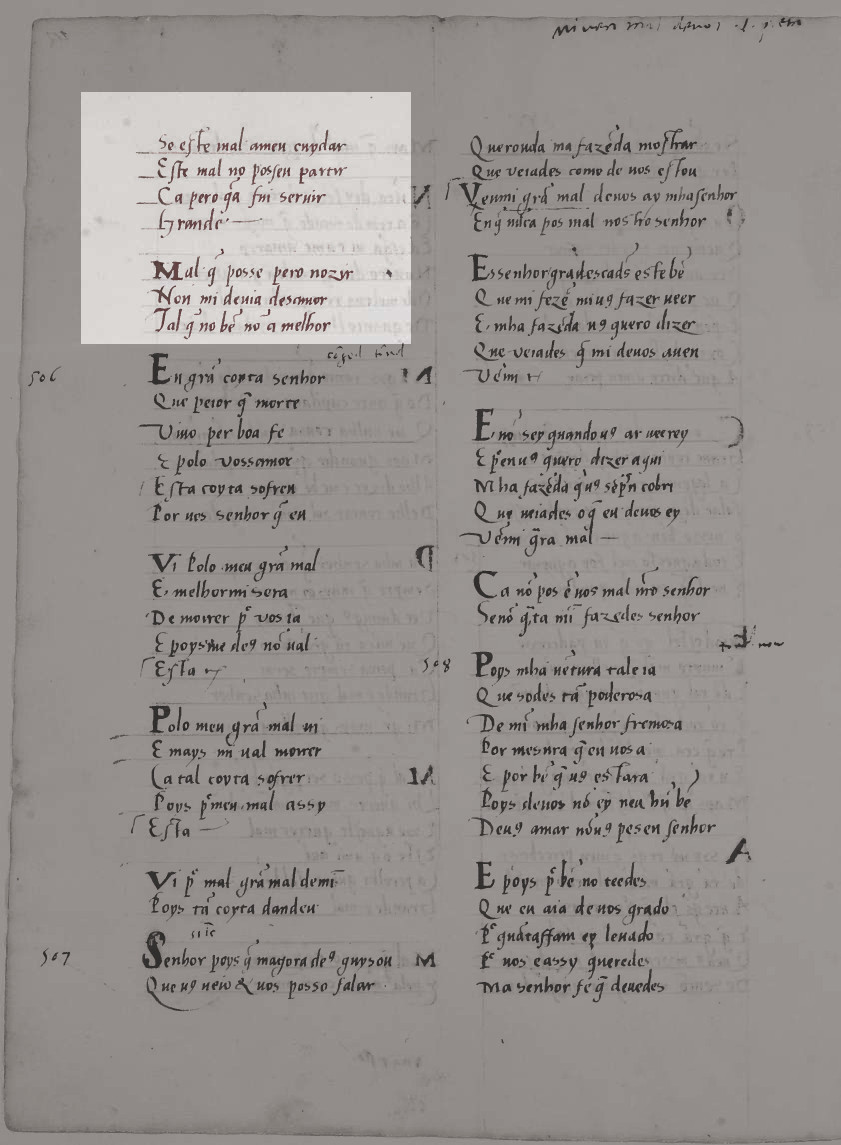 Se este mal ameu cuydar
Este mal no posseu partir
Ca pero q̃a fui seruir
Grande
Mal q̃ posse pero nozir
Non mi deuia desamor
Tal q̃ no bẽ no a melhor
506
En grã coyta senhor
Que peior q̃ morte
Viuo per boa fe
E polo vossamor
Esta coyta sofreu
Por uos senhor q̃ eu
Vi Polo meu grã mal
E melhor mi sera
De moirer pº vos ia
E poys me deꝯ nõ ual
Esta
Polo meu grã mal ui
E mays mi ual moirer
Ca tal coyta sofrer
Poys pº meu mal assy
Esta
Vi pº mal grã mal de mi
Poys tã coyta dandeu
507
Senhor poys q̃ magora deꝯ guysou
Que uꝯ ueio & uos posso falar
Querouda mha fazẽda mostrar
Que ueiades como de uos estou
Venmi grã mal deuos ay mha senhor
En q̃ nũca pos mal nostro senhor
E ssenhor gradescads este bẽ
Que mi fezẽ miuꝯ fazer ueer
E mha fazẽda uꝯ quero dizer
Que ueiades q̃ mi deuos auen
Vẽm
E nõ sey quando uꝯ ar ueerey
E pº en uꝯ quero dizer aqui
Mha fazẽda q̃uꝯ sẽpr̃ cobri
Que ueiades o q̃ eu deuos ey
Vẽmi grã mal
Ca nõ pos ẽ uos mal nr̃o senhor
Senõ q̃ta mi fazedes senhor
508
Poys mha uẽtura tal e ia
Que sodes tã poderosa
De mĩ mha senhor fremosa
Por mesura q̃ eu uosa
E por bẽ q̃ uꝯ estara
Poys deuos nõ ey neu hũ bẽ
Deuꝯ amar nõuꝯ pes en senhor
E poys pº bẽ no teedes
Que eu aia de uos grado
Pº quãtaffam ey leuado
Pº uos e assy queredes
Ma senhor fe q̃ deuedes